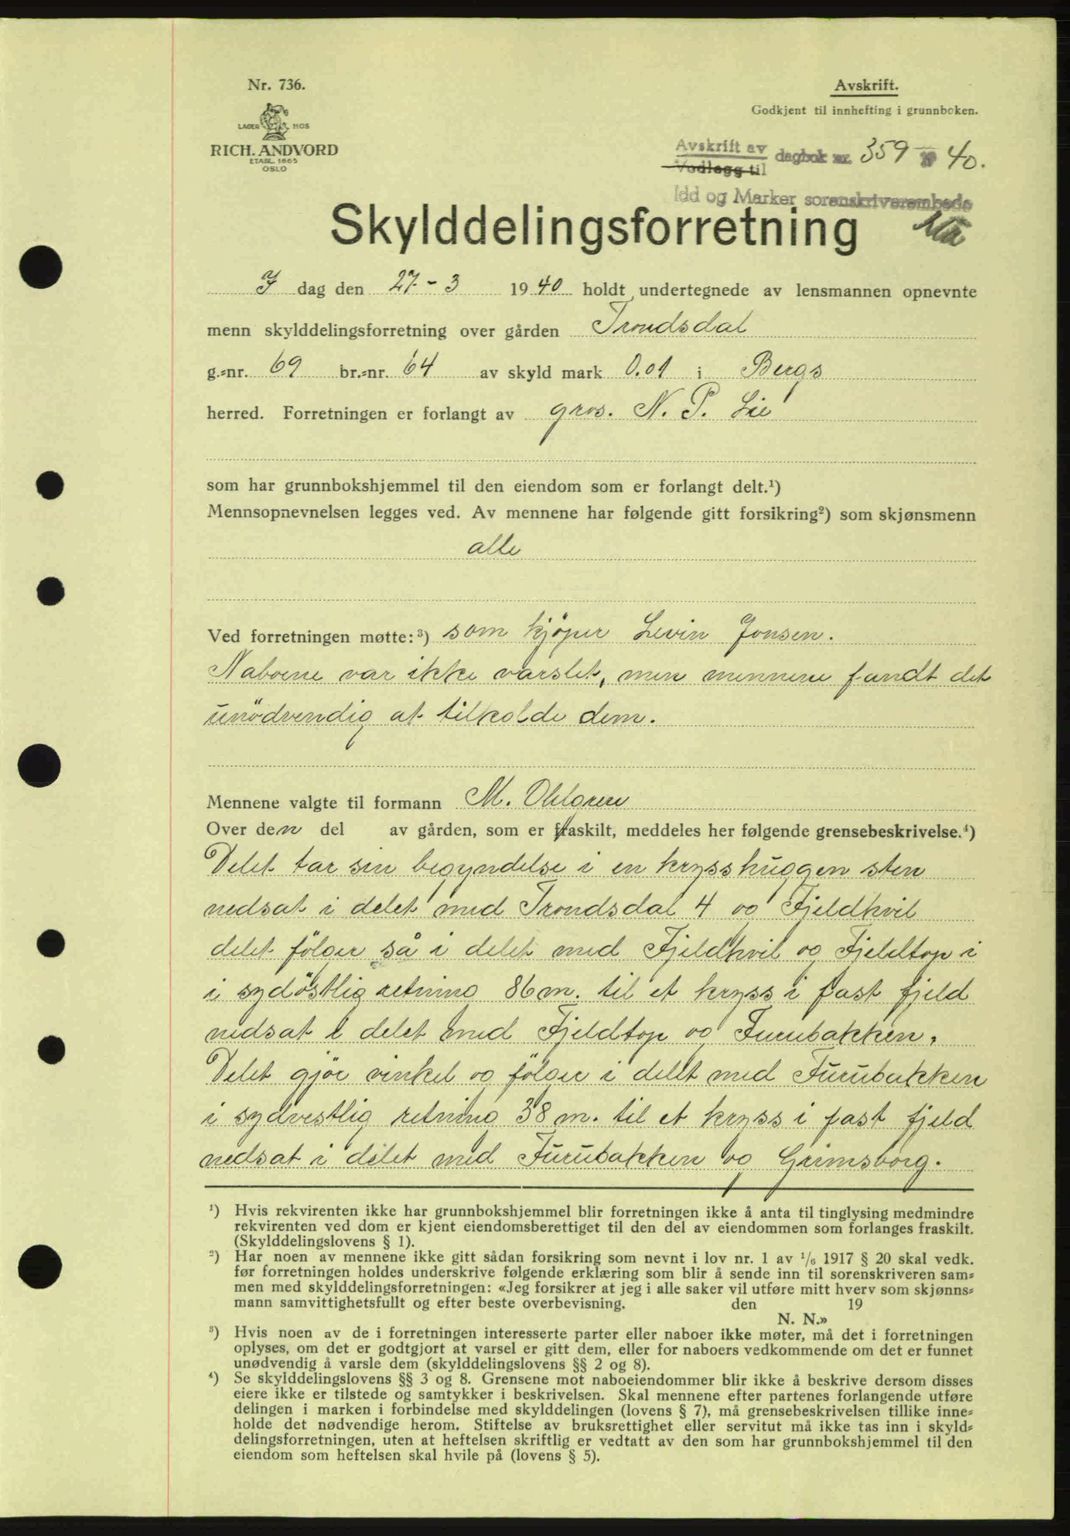 Nr. 736.
LAGER HOS
RICH. ANDVORD
ETABL. 1865
OSLO
Avskrift.
Godkjent til innhefting i grunnboken.
Avskrift av
Vedlegg til
dagbok nr. 359 19 40.
Idd og Marker sorenskriverembede
Skylddelingsforretning
I dag den 27-3 1940 holdt undertegnede av lensmannen opnevnte
menn skylddelingsforretning over gården Trondsdal
g.=nr. 69 br.=nr. 64 av skyld mark 0.01 i Bergs
herred. Forretningen er forlangt av gros. N. P. Lie
som har grunnbokshjemmel til den eiendom som er forlangt delt.¹)
Mennsopnevnelsen legges ved. Av mennene har følgende gitt forsikring²) som skjønsmenn
alle
Ved forretningen møtte:³) som kjöper Levin Jonsen.
Naboene var ikke varslet, men mennene fandt det
unödvendig at tilkalde dem.
Mennene valgte til formann M. Ohlgren
Over den del av gården, som er fraskilt, meddeles her følgende grensebeskrivelse.⁴)
Delet tar sin begyndelse i en krysshuggen sten
nedsat i delet med Trondsdal 4 og Fjeldhvil
delet fölger så i delet med Fjeldhvil og Fjeldtop i
i sydöstlig retning 86 m. til et kryss i fast fjeld
nedsat i delet med Fjeldtop og Furubakken.
Delet gjör vinkel og fölger i delet med Furubakken
i sydvestlig retning 38 m. til et kryss i fast fjeld
nedsat i delet med Furubakken og Grimsborg.
¹) Hvis rekvirenten ikke har grunnbokshjemmel blir forretningen ikke å anta til tinglysing medmindre
rekvirenten ved dom er kjent eiendomsberettiget til den del av eiendommen som forlanges fraskilt.
(Skylddelingslovens § 1).
²) Har noen av mennene ikke gitt sådan forsikring som nevnt i lov nr. 1 av 1/6 1917 § 20 skal vedk.
før forretningen holdes underskrive følgende erklæring som blir å sende inn til sorenskriveren sam=
men med skylddelingsforretningen: «Jeg forsikrer at jeg i alle saker vil utføre mitt hverv som skjønns=
mann samvittighetsfullt og efter beste overbevisning. den 19
N. N.»
³) Hvis noen av de i forretningen interesserte parter eller naboer ikke møter, må det i forretningen
oplyses, om det er godtgjort at varsel er gitt dem, eller for naboers vedkommende om det er funnet
unødvendig å varsle dem (skylddelingslovens §§ 2 og 8).
⁴) Se skylddelingslovens §§ 3 og 8. Grensene mot naboeiendommer blir ikke å beskrive dersom disses
eiere ikke er tilstede og samtykker i beskrivelsen. Skal mennene efter partenes forlangende utføre
delingen i marken i forbindelse med skylddelingen (lovens § 7), må grensebeskrivelsen tillike inne=
holde det nødvendige herom. Stiftelse av bruksrettighet eller servitut må ikke tas inn i skyld=
delingsforretningen, uten at heftelsen skriftlig er vedtatt av den som har grunnbokshjemmel til den
eiendom som heftelsen skal hvile på (lovens § 5).